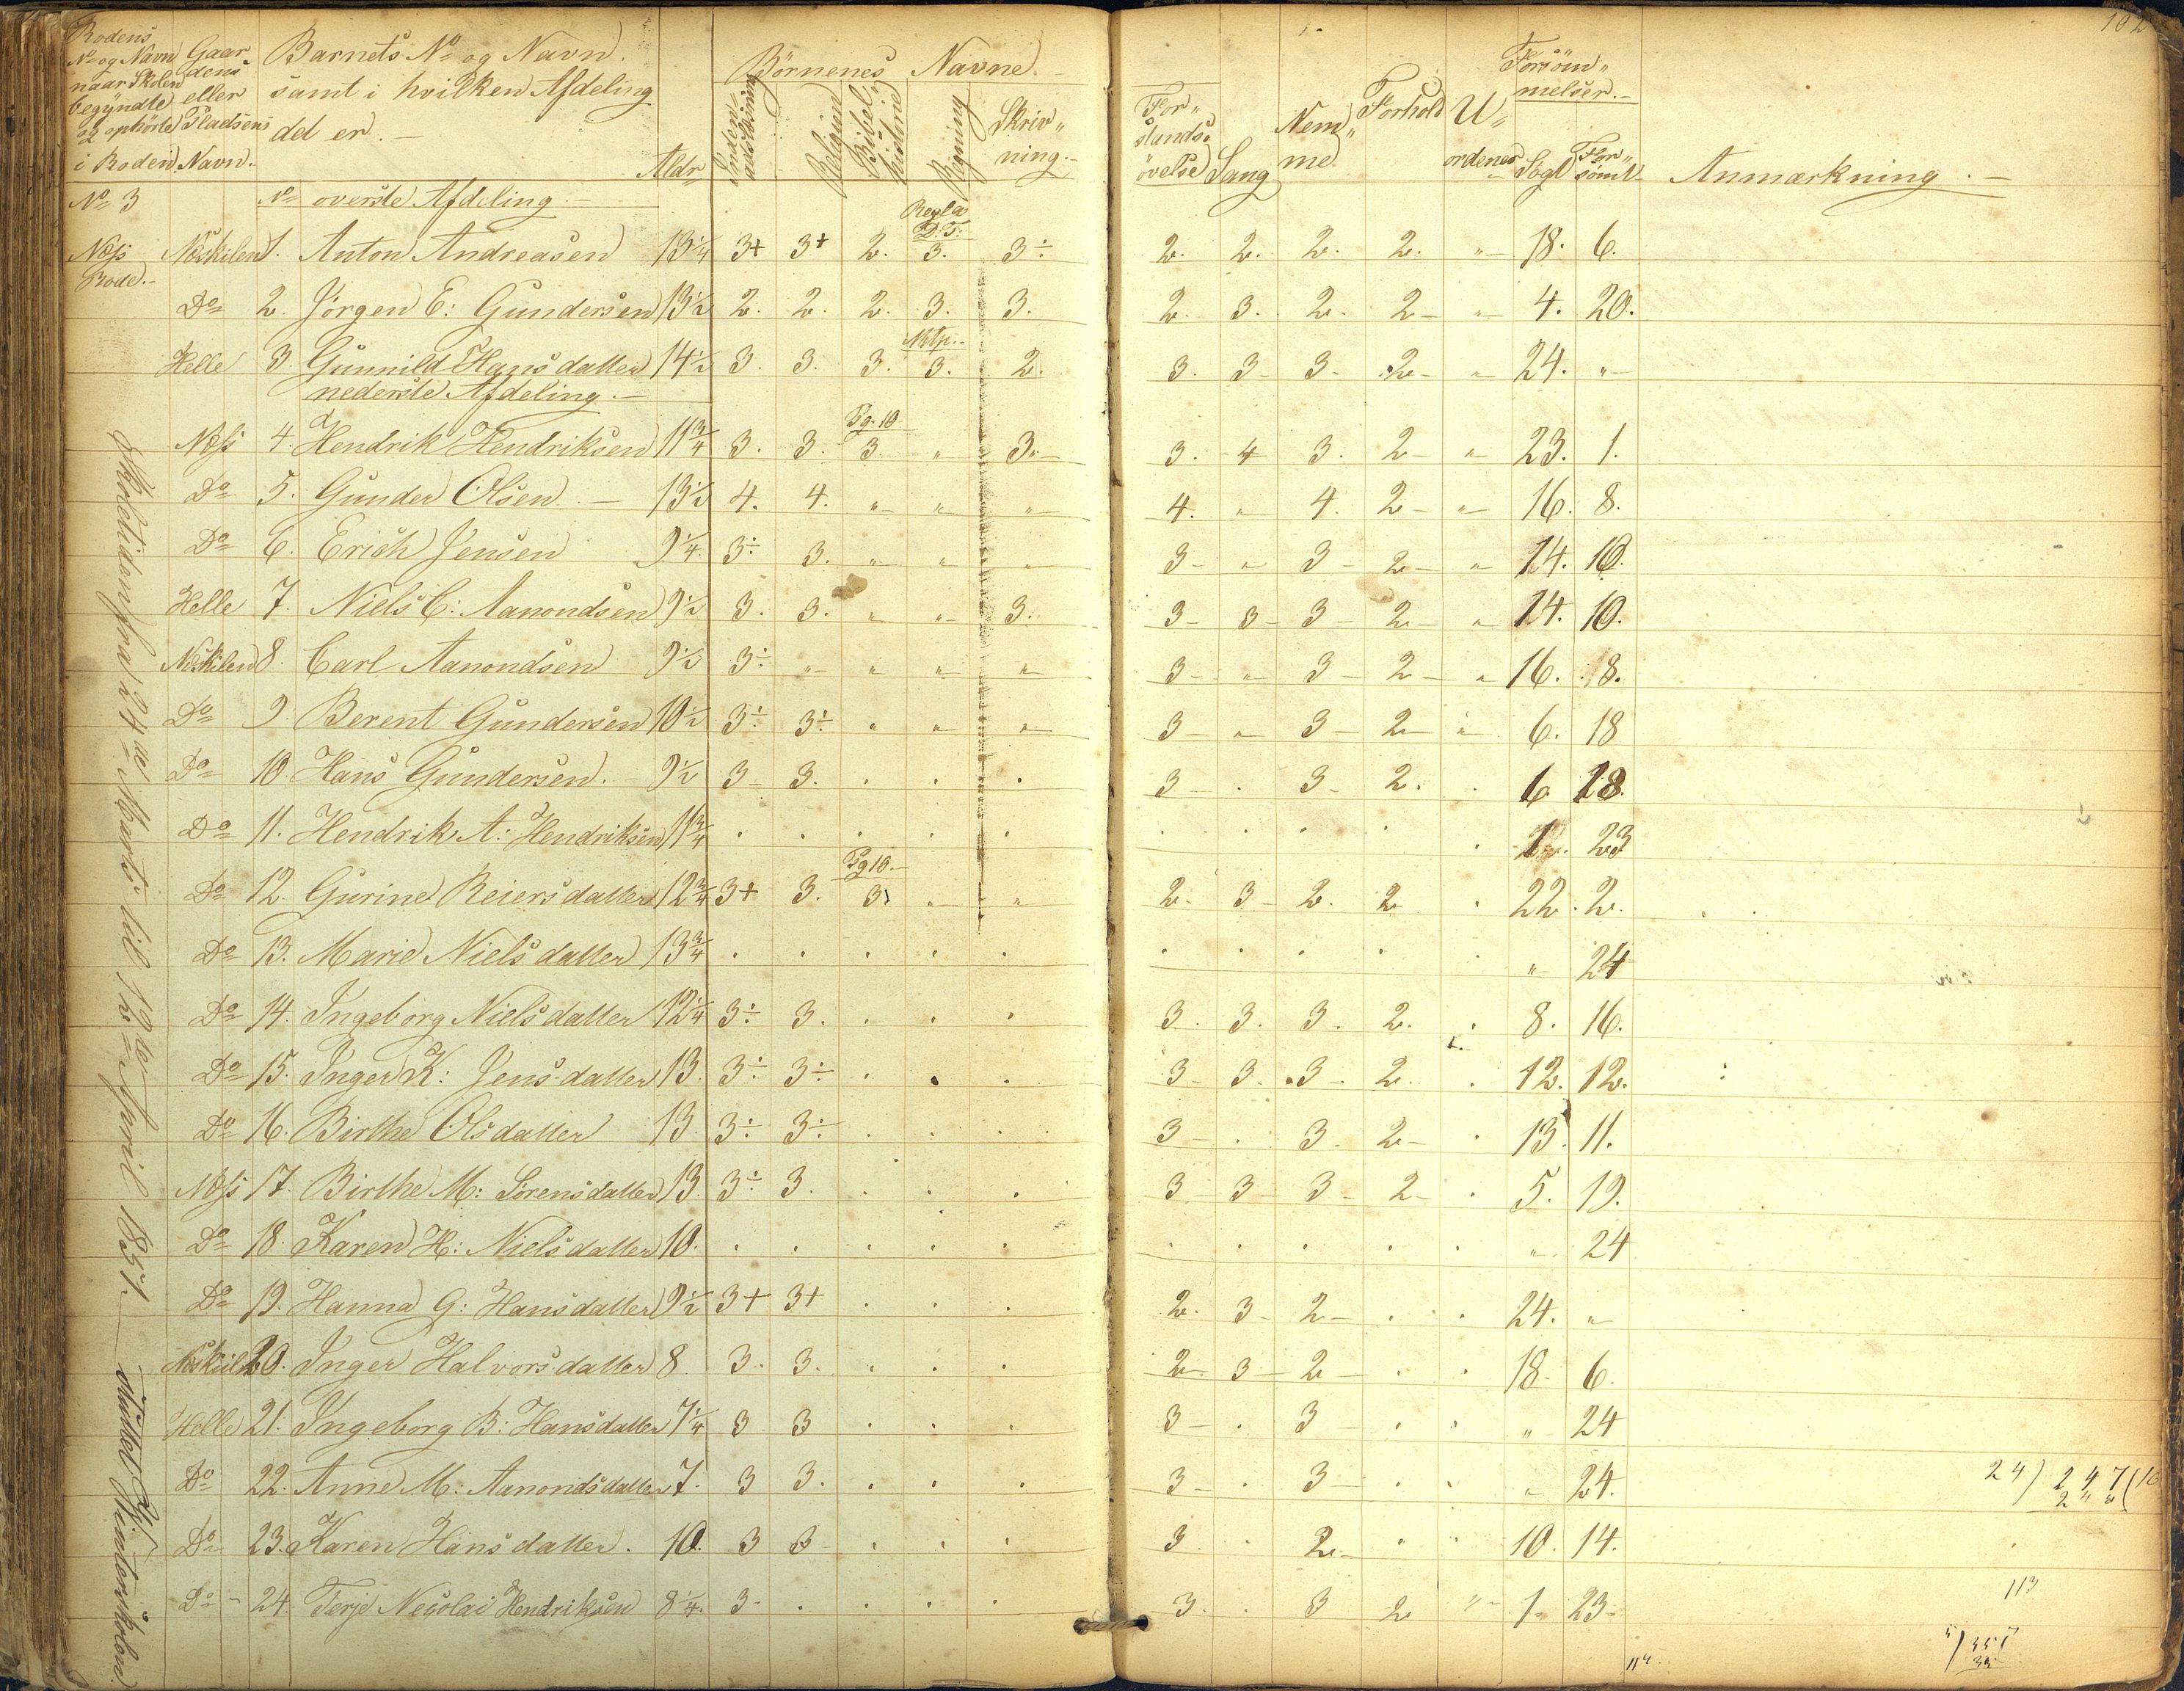 Rodens No og Navn naar Skolen begyndte og ophörte i Roden
Gaardens eller Pladsens Navn.
Barnets No og Navn samt i hvilken Afdeling det er.
Aldr
Börnenes Navne
Religion
Bibelhistorie
Regning
Skrivning.
Forstandsövelse
Sang
Nemme
Forhold
Uordener
Forsömmelser.
Sögt
Forsömt
Anmærkning.
102
No 3 No overste Afdeling.
Regla D. T:
Næss Rode. Næskilen 1. Anton Andreasen 13 1/4 3+ 3+ 2. 3. 3÷ 2. 2. 2. 2. " 18. 6.
Do 2. Jörgen E: Gundersen 13 1/2 2. 2. 2. 3. 3. 2. 3. 2. 2 " 4. 20.
Mtp.
Helle 3. Gunnild Hansdatter 14 1/2 3. 3. 3. 3. 2. 3. 3 3 2 " 24. "
nederste Afdeling.
Pg. 10
Næss 4. Hendrik Hendriksen 11 3/4 3. 3. 3 " 3. 3. 4 3. 2 " 23. 1.
Do 5. Gunder Olsen 13 1/2 4. 4. " " " 4. " 4. 2 " 16. 8.
Do 6. Erich Jensen 9 1/4 3÷ 3. " " " 3 " 3 2 " 14. 10.
Helle 7. Niels C: Aanondsen 9 1/2 3. 3. " " 3. 3 3 3 2 " 14. 10.
Næskilen 8. Carl Aanondsen 9 1/2 3÷ " " " " 3 " 3 2 " 16. 8.
Do 9. Berent Gundersen 10 1/2 3÷ 3÷ " " " 3 " 3 2 " 6. 18
Do 10. Hans Gundersen. 9 1/2 3 3. . . . 3 . 3 2. . 6 18.
Do 11. Hendrik A: Hendriksen 11 3/4 . . . . . . . . . . 1. 23
Pg 10.
Do 12. Gurine Reiersdatter 12 3/4 3+ 3. 3. " " 2. 3 2. 2 . 22. 2.
Do 13. Marie Nielsdatter 13 3/4 . . . . . . . . . . " 24
Do 14. Ingeborg Nielsdatter 12 1/4 3÷ 3. . . . 3. 3. 3. 2. . 8. 16.
Do 15. Inger K: Jensdatter 13. 3÷ 3÷ . . . 3 3. 3. 2. . 12. 12.
Do 16. Birthe Olsdatter 13. 3÷ 3÷ . . . 3 . 3. 2 . 13. 11.
Næss 17. Birthe M: Sörensdatter 13. 3÷ 3. . . . 3 3 3 2 . 5. 19.
Do 18. Karen H: Nielsdatter 10. . . . . . . . . . . " 24
Do 19. Hanna G: Hansdatter 9 1/2 3+ 3+ . . . 2. 3 2 . . 24. "
Næskilen 20. Inger Halvorsdatter 8 3. 3. . . . 2 3 2 . . 18. 6.
Helle 21. Ingeborg B: Hansdatter 7 1/4 3 3 . . . 3 . 3 . . " 24
Do 22. Anne M: Aanondsdatter 7. 3 3. . . . 3 . 3 . . " 24.
Do 23. Karen Hansdatter. 10. 3 3 . . . 3 . 2 . . 10. 14.
Do 24. Terje Necolai Hendriksen 8 1/4. 3 . . . . 3. . 3 2 " 1. 23
Skoletiden fra 24de Marts til 12de April 1851. sluttet Vinterskolen.
24) 247 (10
113
114